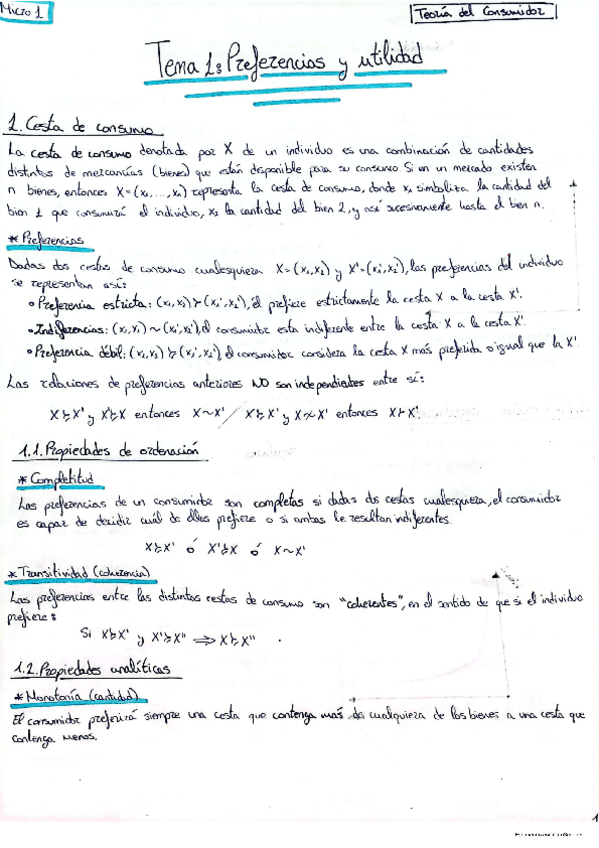 Micro 1
Teoría del Consumidor
Tema 1: Preferencias y utilidad
1. Cesta de consumo
La cesta de consumo denotada por X de un individuo es una combinación de cantidades
distintas de mercancías (bienes) que están disponible para su consumo. Si en un mercado existen
n bienes, entonces X=(x₁,...,xₙ) representa la cesta de consumo, donde x₁ simboliza la cantidad del
bien 1 que consumirá el individuo, x₂ la cantidad del bien 2, y así sucesivamente hasta el bien n.
* Preferencias
Dadas dos cestas de consumo cualesquiera X=(x₁,x₂) y X'=(x₁',x₂'), las preferencias del individuo
se representan así:
• Preferencia estricta: (x₁,x₂)≻(x₁',x₂'), él prefiere estrictamente la cesta X a la cesta X'.
• Indiferencias: (x₁,x₂)~(x₁',x₂') el consumidor esta indiferente entre la cesta X a la cesta X'.
• Preferencia débil: (x₁,x₂)≽(x₁',x₂'), el consumidor considera la cesta X más preferida o igual que la X'.
Las relaciones de preferencias anteriores NO son independientes entre sí:
X≽X' y X'≽X entonces X~X' / X≽X' y X≁X' entonces X≻X'.
1.1. Propiedades de ordenación
* Completitud
Las preferencias de un consumidor son completas si dadas dos cestas cualesquiera, el consumidor
es capaz de decidir cuál de ellas prefiere o si ambas le resultan indiferentes.
X≽X' ó X'≽X ó X~X'
* Transitividad (coherencia)
Las preferencias entre las distintas cestas de consumo son "coherentes", en el sentido de que si el individuo
prefiere:
Si X≽X' y X'≽X'' ⇒ X≽X''
1.2. Propiedades analíticas
* Monotonía (cantidad)
El consumidor preferirá siempre una cesta que contenga más de cualquiera de los bienes a una cesta que
contenga menos.
1